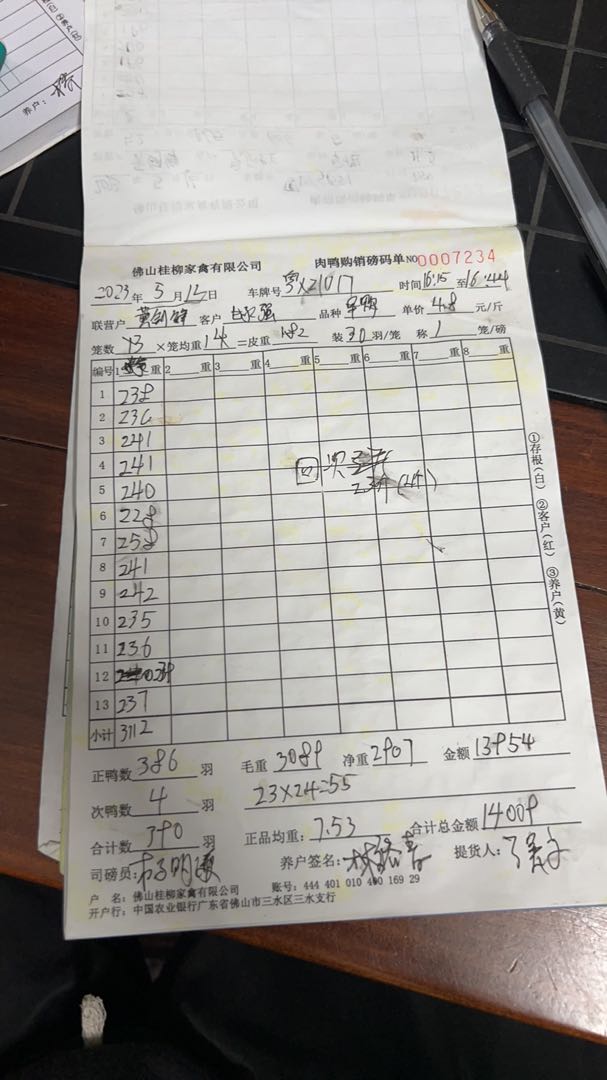 养户：
佛山桂柳家禽有限公司 肉鸭购销磅码单 NO 0007234
2023年 5月 12日 车牌号 粤X21017 时间 16:15 至 16:44
联营户 客户 品种 单价 4.8 元/斤
笼数 13 ×笼均重 14 =皮重 182 装 30 羽/笼 称 1 笼/磅
编号 1 重 2 重 3 重 4 重 5 重 6 重 7 重 8 重
1 238
2 236
3 241
4 241
5 240
6 228
7 258
8 241
9 242
10 235
11 236
12
13 237
小计 3112
回 次
23斤(4只)
①存根(白) ②客户(红) ③养户(黄)
正鸭数 386 羽 毛重 3089 净重 2907 金额 13954
次鸭数 4 羽 23×2.4=55
合计数 390 羽 正品均重: 7.53 合计总金额 14009
司磅员: 养户签名: 提货人:
户 名: 佛山桂柳家禽有限公司 账号: 444 401 010 400 169 29
开户行: 中国农业银行广东省佛山市三水区三水支行